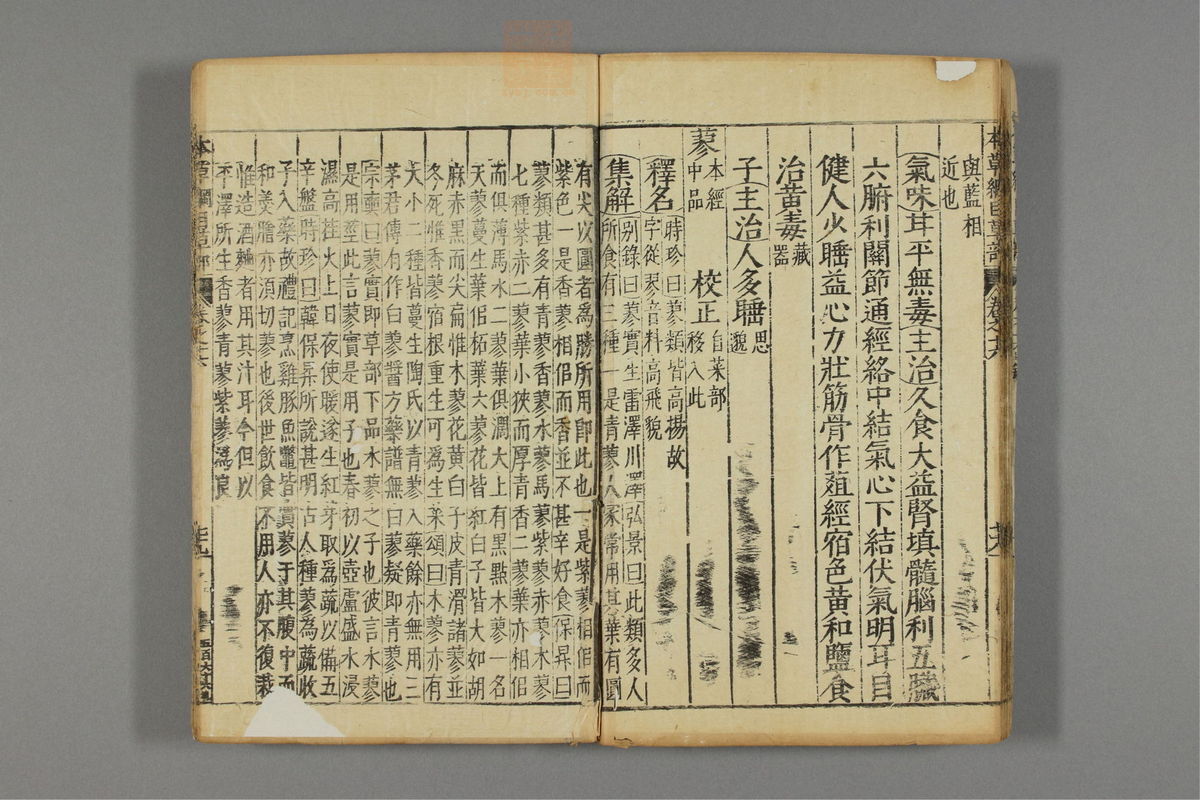 與藍相
近也
氣味甘平無毒主治久食大益腎填髓腦利五臟
六腑利關節通經絡中結氣心下結伏氣明耳目
健人少睡益心力壯筋骨作葅經宿色黃和鹽食
治黃毒藏器
子主治人多睡思邈
蓼本經中品 校正自菜部移入此
釋名時珍曰蓼類皆高揚故
字從翏音料高飛貌
集解別錄曰蓼實生雷澤川澤弘景曰此類多人
所食有三種一是青蓼人家常用其葉有圓
有尖以圓者為勝所用即此也一是紫蓼相佀而
紫色一是香蓼相佀而香並不甚辛好食保昇曰
蓼類甚多有青蓼香蓼水蓼馬蓼紫蓼赤蓼木蓼
七種紫赤二蓼葉小狹而厚青香二蓼葉亦相佀
而俱薄馬水二蓼葉俱濶大上有黑點木蓼一名
天蓼蔓生葉佀柘葉六蓼花皆紅白子皆大如胡
麻赤黑而尖扁惟木蓼花黃白子皮青滑諸蓼並
冬死惟香蓼宿根重生可為生菜頌曰木蓼亦有
大小二種皆蔓生陶氏以青蓼入藥餘亦無用三
茅君傳有作白蓼醬方藥譜無白蓼疑即青蓼也
宗奭曰蓼實即草部下品水蓼之子也彼言水蓼
是用莖此言蓼實是用子也春初以壺盧盛水浸
濕高挂火上日夜使暖遂生紅芽取為蔬以備五
辛盤時珍曰韓保昇所說甚明古人種蓼為蔬收
子入藥故禮記烹雞豚魚鼈皆實蓼于其腹中而
和羹膾亦須切蓼也後世飲食不用人亦不復栽
惟造酒麴者用其汁耳今但以
平澤所生香蓼青蓼紫蓼為良